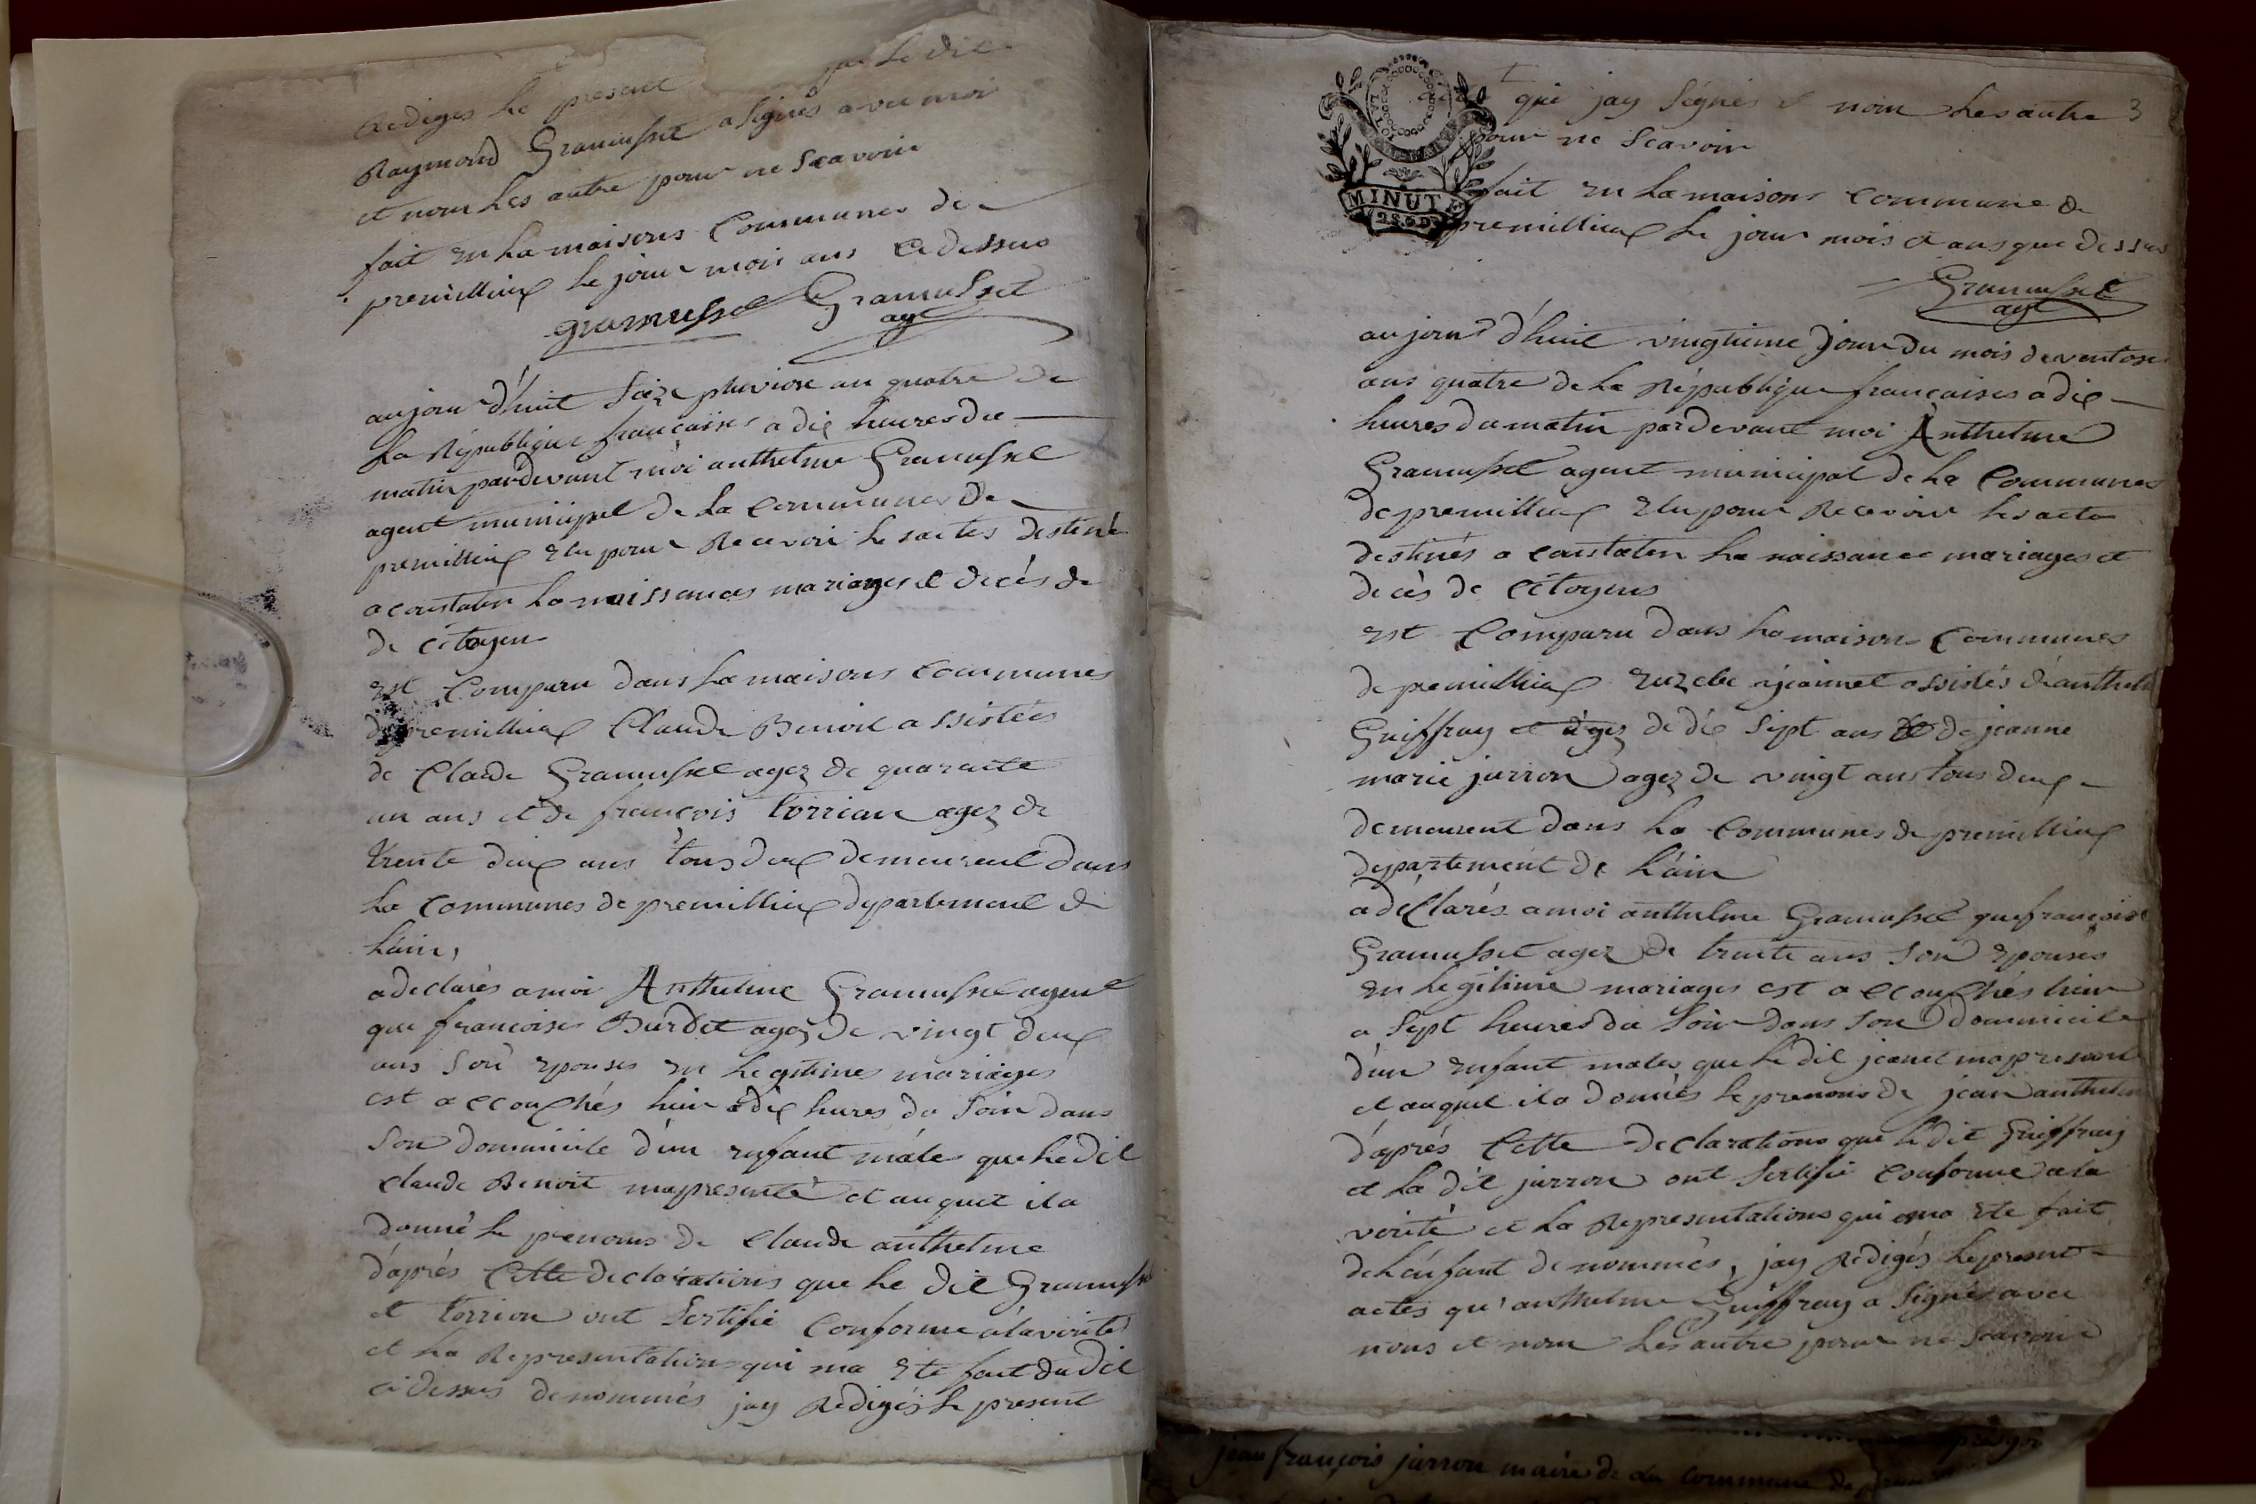 Rediges le present par le dit
Raymond Gramusset a signés avec moi
et nom les autre pour ne scavoir
fait en la maisons Communes de
premillieux le jour mois ans cidessus
gramusset Gramusset
agt
aujourd'huit Seize pluviose an quatre de
la République francaises a dix heures du
matin pardevant moi anthelme Gramusset
agent municipal de la Communes de
premillieux elu pour Recevoir les actes destiné
a constater la naissances mariages et decès de
de citoyen
est Comparu dans la maisons communes
de premillieux Claude Benoit assistées
de Claude Gramusset agez de quarante
un ans et de françois torrion agez de
trente deux ans tous deux demeurent dans
la communes de premillieux departement de
lain,
a declarés a moi Anthelme Gramusset agent
que francoises Burdet agez de vingt deux
ans son epouses en legitimes mariages
est accouchés hier a dix hures du soir dans
son dommicile d'un enfant mâle que le dit
claude Benoit ma presenté et auquel il a
donné le prenoms de Claude anthelme
d'après Cette declarations que le dit Gramusset
et torrion ont Sertifié Conforme a la verité
et la Representations qui ma ete fait du dit
ci dessus denommés jay Redigés le present
qui jay Signés et nom les autre 3
pour ne Scavoir
MINUTE
fait en la maisons commune de
premillieux le jour mois et ans que dessus
Gramusset
agt
aujourd'huit vingtieme jour du mois de ventose
ans quatre de la République françaises a dix
heures du matin pardevant moi Anthelme
Gramusset agent municipal de la Communes
de premillieux elu pour Recevoir les acte
destinés a constater la naissance mariages et
decès de Citoyens
est Comparu dans la maisons Communes
de premillieux jeannet assistés d'anthelme
Guiffray et agez de dix sept ans de jeanne
marie jurron agez de vingt ans tous deux
demeurent dans la Communes de premillieux
departement de l'ain
a déClarés a moi anthelme Gramusset que françoise
Gramusset agez de trente ans son epouses
en legitime mariages est accouchés hier
a sept heures du soir dans son dommicile
d'un enfant males que le dit jeanet ma presenté
et auquel il a donnés le prenoms de jean anthelme
d'après Cette declarations que le dit Guiffray
et la dit jurron ont Sertifié conforme a la
verité et la Representations qui ma ete fait
de l'enfant denommés, jay Redigés le present
actes qu'anthelme Guiffray a Signés avec
nous et nom les autre pour ne scavoir
jean françois jurron maire de la commune de